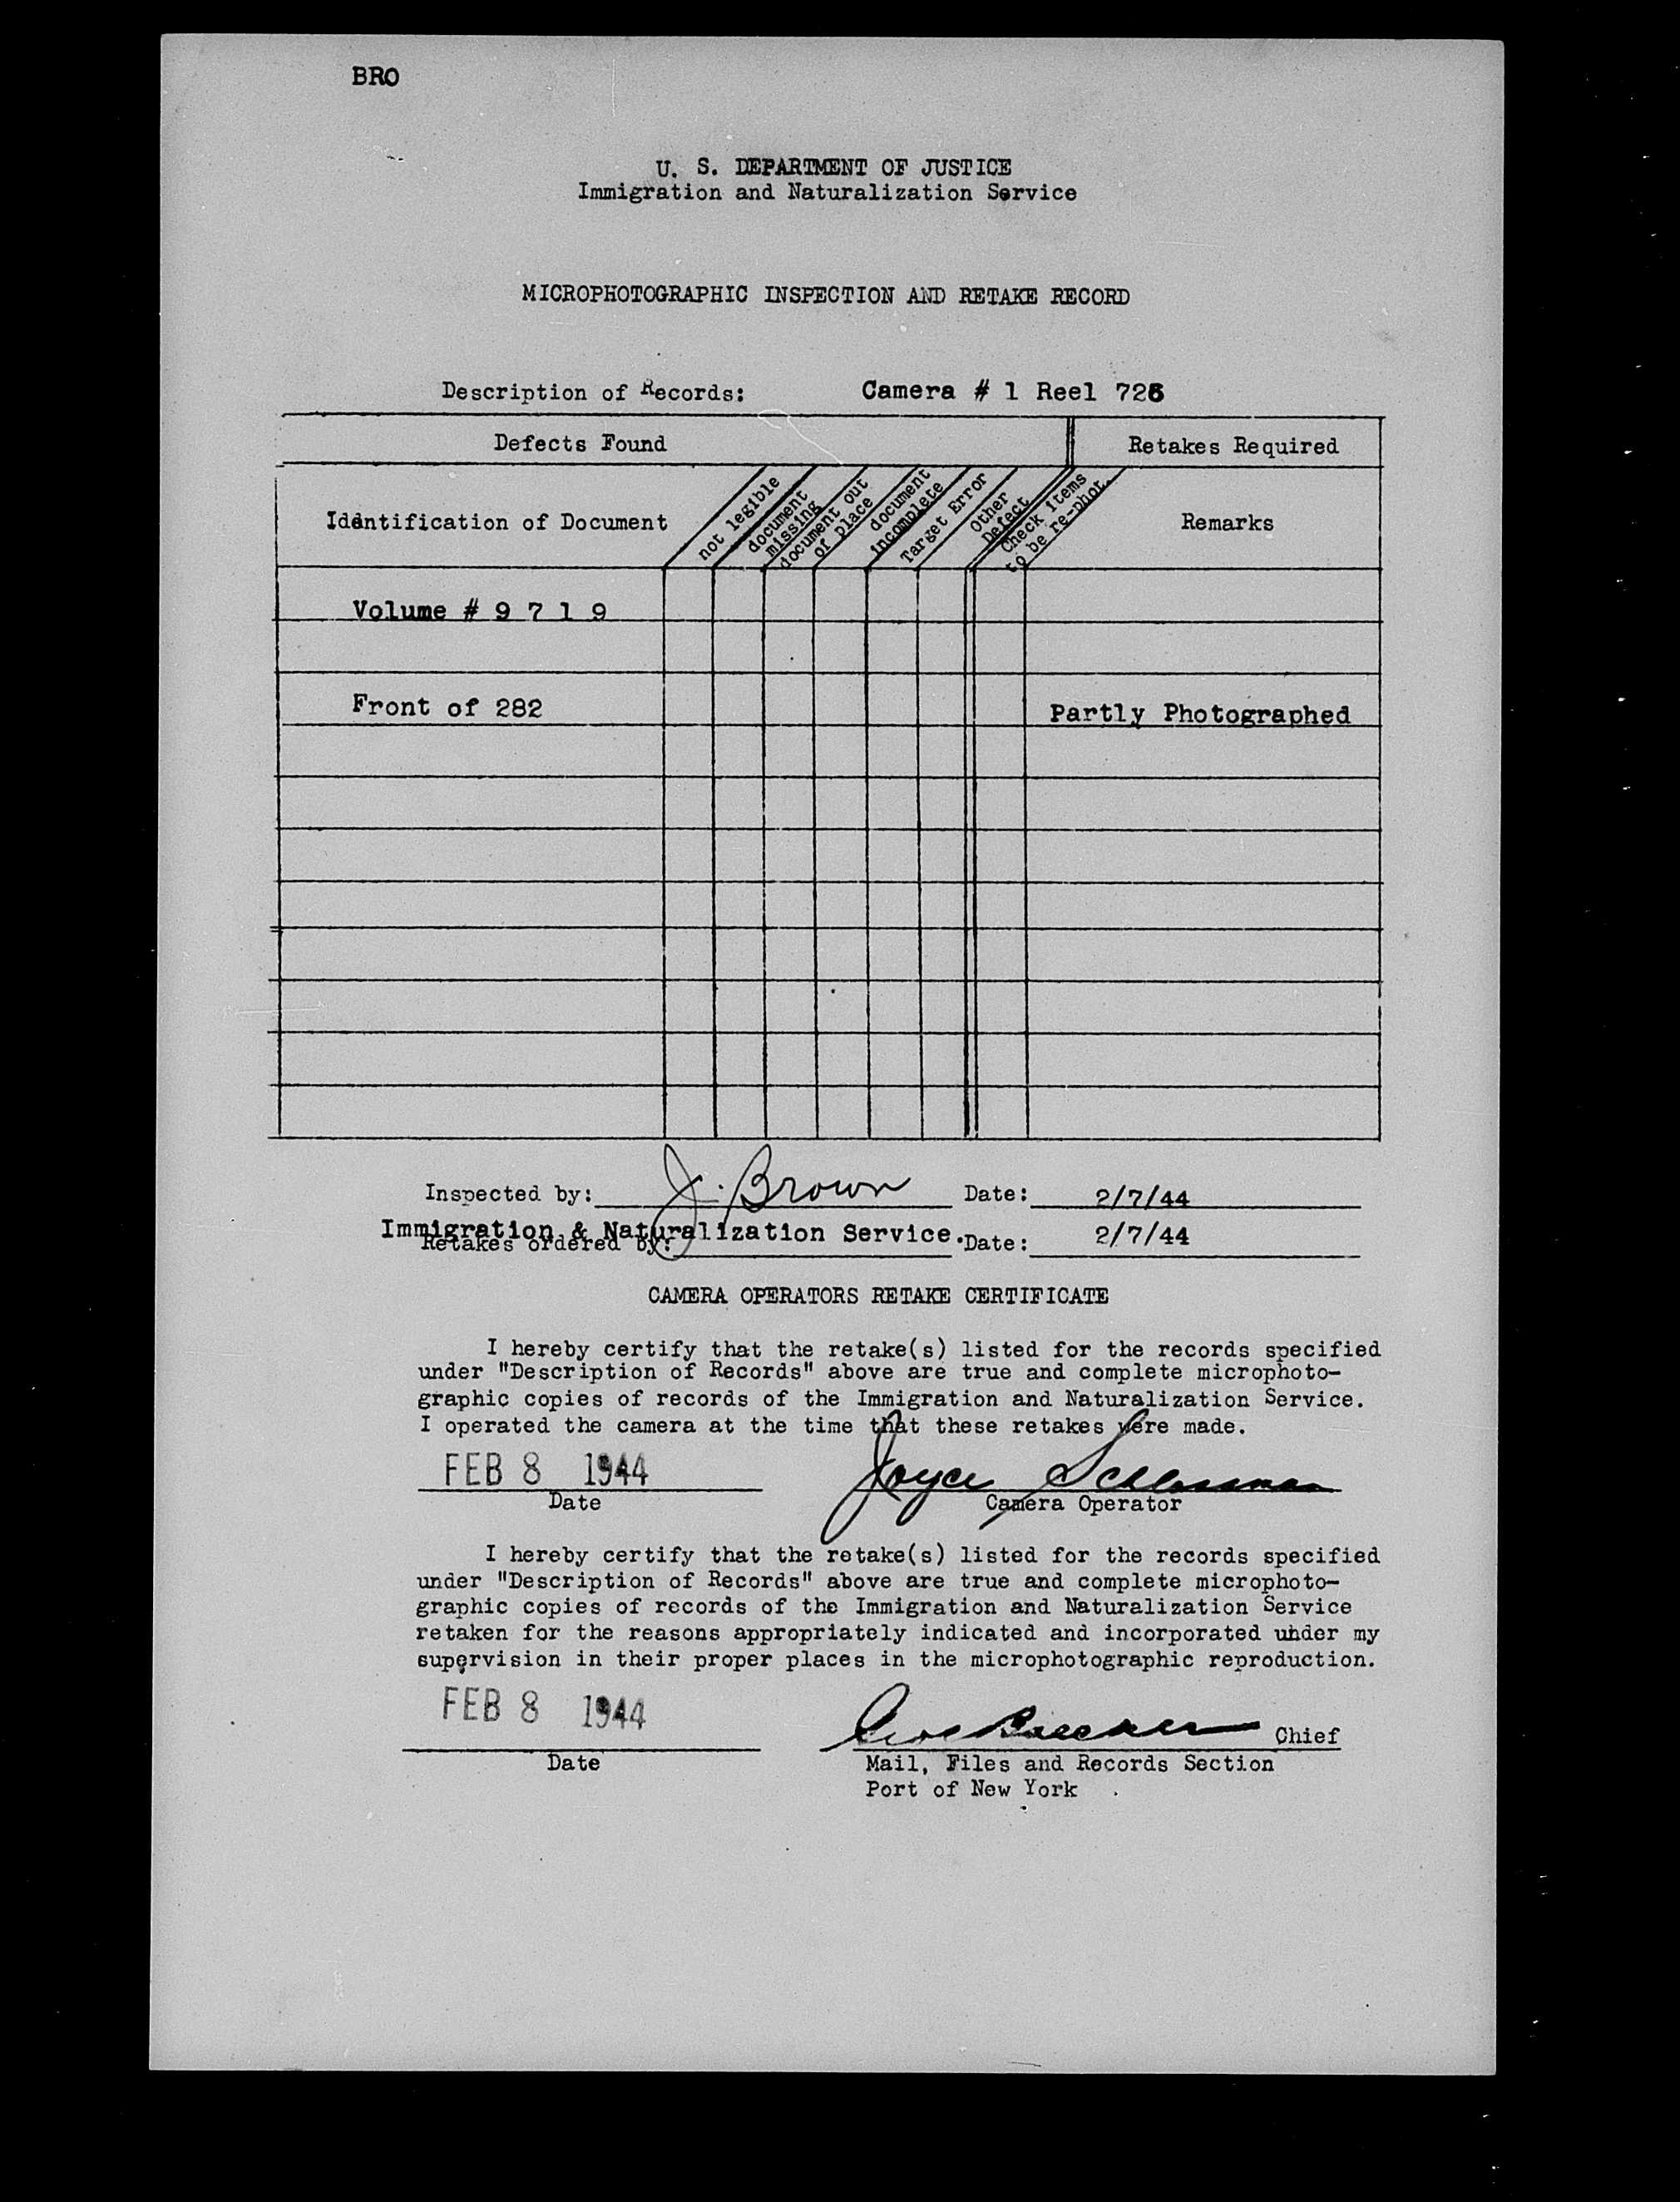 BRO
U. S. DEPARTMENT OF JUSTICE
Immigration and Naturalization Service
MICROPHOTOGRAPHIC INSPECTION AND RETAKE RECORD
Description of Records: Camera # 1 Reel 726
Defects Found Retakes Required
Identification of Document
not legible
document missing
document out of place
document incomplete
Target Error
Other Defect
Check items to be re-phot.
Remarks
Volume # 9 7 1 9
Front of 282 Partly Photographed
Inspected by: J. Brown Date: 2/7/44
Immigration & Naturalization Service.
Retakes ordered by: Date: 2/7/44
CAMERA OPERATORS RETAKE CERTIFICATE
I hereby certify that the retake(s) listed for the records specified
under "Description of Records" above are true and complete microphoto-
graphic copies of records of the Immigration and Naturalization Service.
I operated the camera at the time that these retakes were made.
FEB 8 1944 Joyce
Date Camera Operator
I hereby certify that the retake(s) listed for the records specified
under "Description of Records" above are true and complete microphoto-
graphic copies of records of the Immigration and Naturalization Service
retaken for the reasons appropriately indicated and incorporated under my
supervision in their proper places in the microphotographic reproduction.
FEB 8 1944 Chief
Date Mail, Files and Records Section
Port of New York